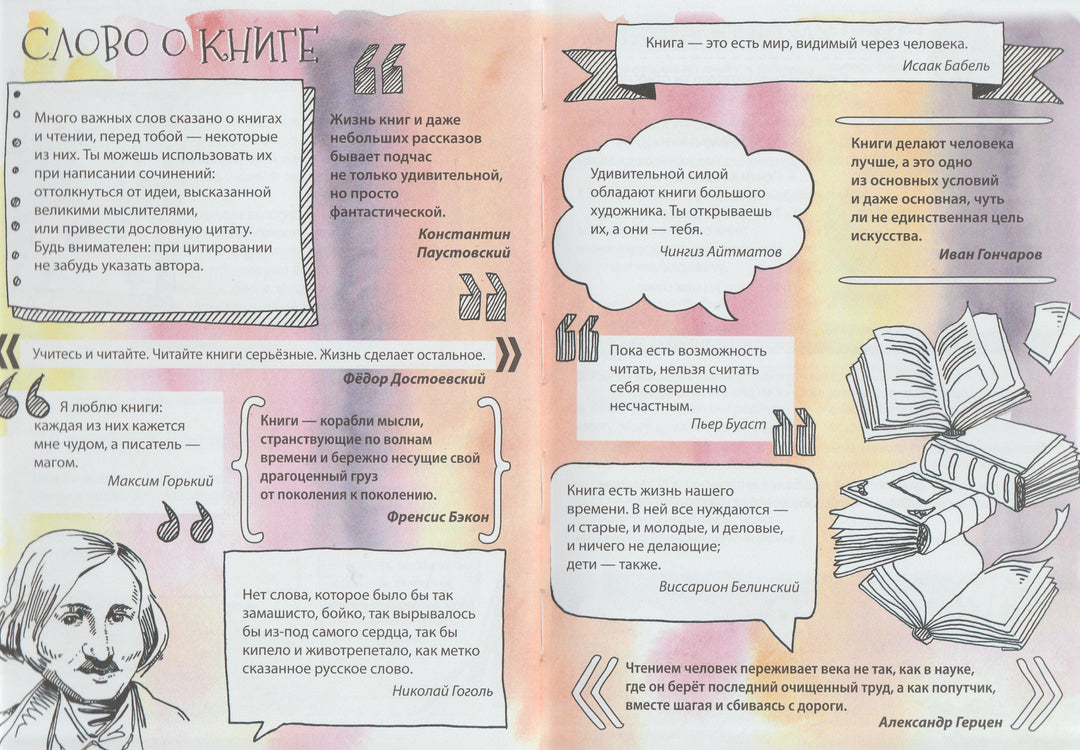 СЛОВО О КНИГЕ
Много важных слов сказано о книгах
и чтении, перед тобой — некоторые
из них. Ты можешь использовать их
при написании сочинений:
оттолкнуться от идеи, высказанной
великими мыслителями,
или привести дословную цитату.
Будь внимателен: при цитировании
не забудь указать автора.
Жизнь книг и даже
небольших рассказов
бывает подчас
не только удивительной,
но просто
фантастической.
Константин
Паустовский
Учитесь и читайте. Читайте книги серьёзные. Жизнь сделает остальное.
Фёдор Достоевский
Я люблю книги:
каждая из них кажется
мне чудом, а писатель —
магом.
Максим Горький
Книги — корабли мысли,
странствующие по волнам
времени и бережно несущие свой
драгоценный груз
от поколения к поколению.
Френсис Бэкон
Нет слова, которое было бы так
замашисто, бойко, так вырывалось
бы из-под самого сердца, так бы
кипело и животрепетало, как метко
сказанное русское слово.
Николай Гоголь
Книга — это есть мир, видимый через человека.
Исаак Бабель
Удивительной силой
обладают книги большого
художника. Ты открываешь
их, а они — тебя.
Чингиз Айтматов
Книги делают человека
лучше, а это одно
из основных условий
и даже основная, чуть
ли не единственная цель
искусства.
Иван Гончаров
Пока есть возможность
читать, нельзя считать
себя совершенно
несчастным.
Пьер Буаст
Книга есть жизнь нашего
времени. В ней все нуждаются —
и старые, и молодые, и деловые,
и ничего не делающие;
дети — также.
Виссарион Белинский
Чтением человек переживает века не так, как в науке,
где он берёт последний очищенный труд, а как попутчик,
вместе шагая и сбиваясь с дороги.
Александр Герцен